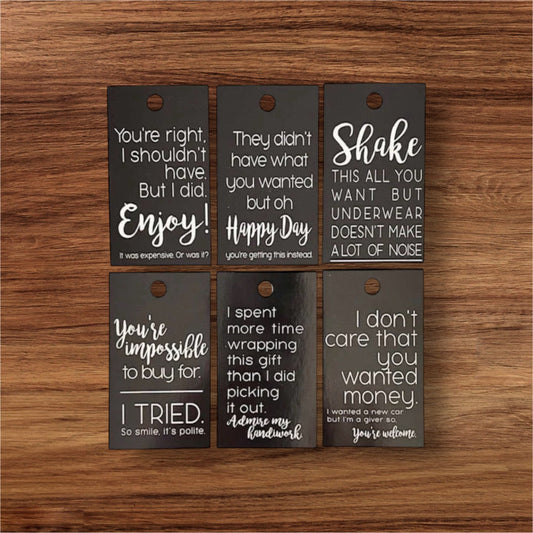 You're right,
I shouldn't
have.
But I did.
Enjoy!
It was expensive. Or was it?
They didn't
have what
you wanted
but oh
Happy Day
you're getting this instead.
Shake
THIS ALL YOU
WANT BUT
UNDERWEAR
DOESN'T MAKE
A LOT OF NOISE
You're
impossible
to buy for.
I TRIED.
So smile, it's polite.
I spent
more time
wrapping
this gift
than I did
picking
it out.
Admire my
handiwork.
I don't
care that
you
wanted
money.
I wanted a new car
but I'm a giver so.
You're welcome.